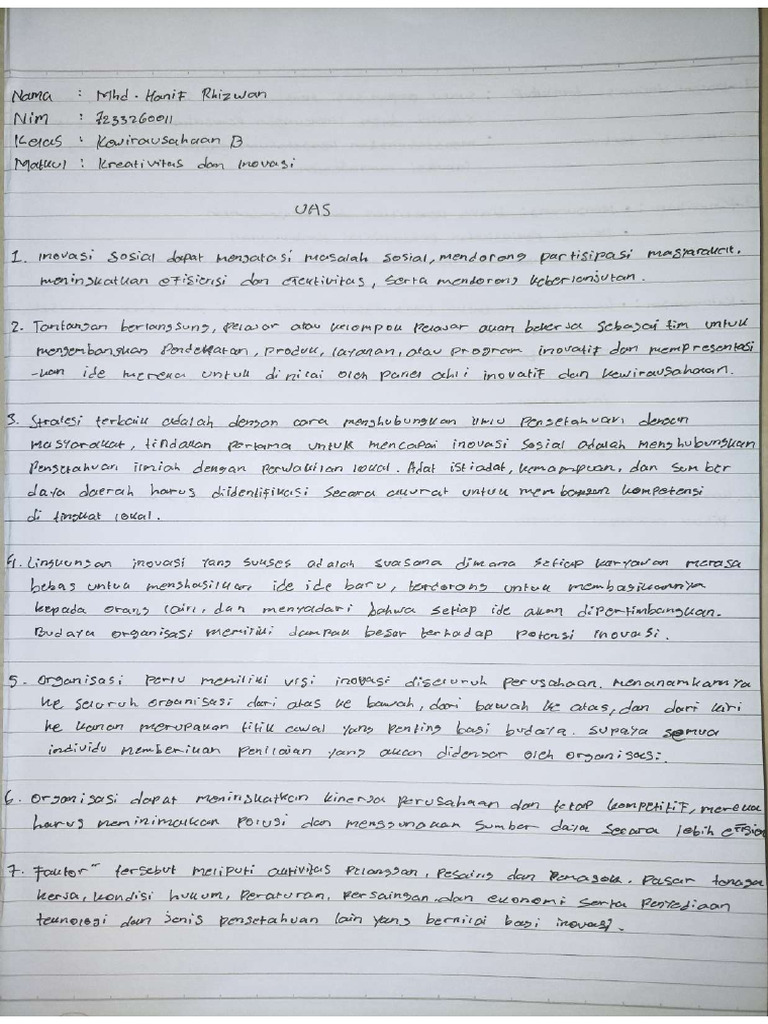 Nama : Mhd. Hanif Rhizwan
Nim : 7233260011
Kelas : Kewirausahaan B
Matkul : Kreativitas dan Inovasi
UAS
1. Inovasi sosial dapat mengatasi masalah sosial, mendorong partisipasi masyarakat,
meningkatkan efisiensi dan efektivitas, serta mendorong keberlanjutan.
2. Tantangan berlangsung, pelajar atau kelompok pelajar akan bekerja sebagai tim untuk
mengembangkan pendekatan, produk, layanan, atau program inovatif dan mempresentasi
-kan ide mereka untuk dinilai oleh panel ahli inovatif dan kewirausahaan.
3. Strategi terbaik adalah dengan cara menghubungkan ilmu pengetahuan dengan
masyarakat, tindakan pertama untuk mencapai inovasi sosial adalah menghubungkan
pengetahuan ilmiah dengan perwakilan lokal. Adat istiadat, kemampuan, dan sumber
daya daerah harus diidentifikasi secara akurat untuk membangun kompetensi
di tingkat lokal.
4. Lingkungan inovasi yang sukses adalah suasana dimana setiap karyawan merasa
bebas untuk menghasilkan ide ide baru, terdorong untuk membagikannya
kepada orang lain, dan menyadari bahwa setiap ide akan dipertimbangkan.
Budaya organisasi memiliki dampak besar terhadap potensi inovasi.
5. Organisasi perlu memiliki visi inovasi diseluruh perusahaan. Menanamkannya
ke seluruh organisasi dari atas ke bawah, dari bawah ke atas, dan dari kiri
ke kanan merupakan titik awal yang penting bagi budaya. Supaya semua
individu memberikan penilaian yang akan didengar oleh organisasi.
6. Organisasi dapat meningkatkan kinerja perusahaan dan tetap kompetitif, mereka
harus meminimalkan polusi dan menggunakan sumber daya secara lebih efisien
7. Faktor" tersebut meliputi aktivitas pelanggan, pesaing dan pemasok. Pasar tenaga
kerja, kondisi hukum, peraturan, persaingan dan ekonomi serta penyediaan
teknologi dan jenis pengetahuan lain yang bernilai bagi inovasi.